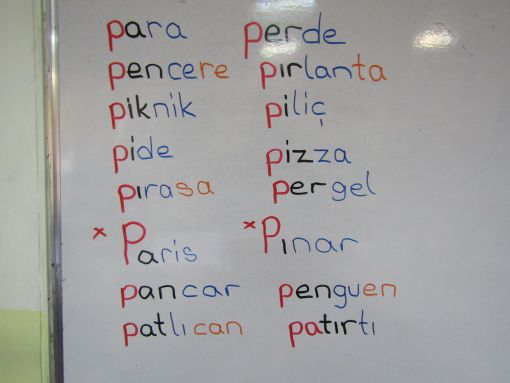 para perde
pencere pırlanta
piknik piliç
pide pizza
pırasa pergel
× Paris × Pınar
pancar penguen
patlıcan patırtı